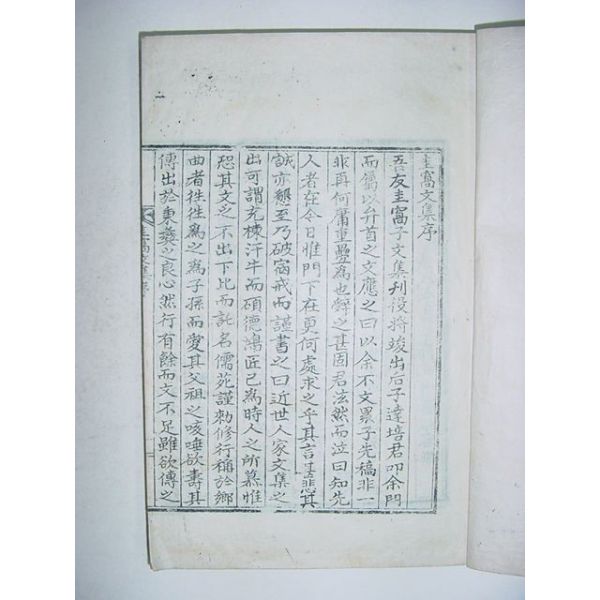 圭窩文集序
吾友圭窩子文集刊役將竣出后子達培君叩余門
而屬以弁首之文應之曰以余不文累子先稿非一
非再何庸重疊爲也辭之甚固君泫然而泣曰知先
人者在今日惟門下在更何處求之乎其言甚悲其
誠亦懇至乃破窩戒而謹書之曰近世人家文集之
出可謂充棟汗牛而碩德鴻匠已爲時人之所慕惟
恐其文之不出下比而託名儒苑謹勅修行稱於鄕
曲者徃徃爲之爲子孫而愛其父祖之咳唾欲壽其
傳出於秉彝之良心然行有餘而文不足雖欲傳之